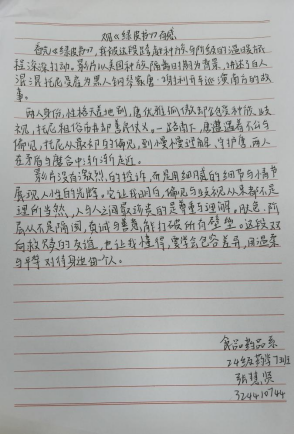 观《绿皮书》有感
看完《绿皮书》,我被这段跨越种族与阶级的温暖旅
程深深打动。影片以美国种族隔离时期为背景,讲述了白人
混混托尼受雇为黑人钢琴家唐·谢利开车巡演南方的故
事。
两人身份、性格天差地别,唐优雅孤傲却饱受种族歧
视,托尼粗俗市井却善良仗义。一路南下,唐遭遇着不公与
偏见,托尼从最初的偏见,到慢慢理解、守护唐,两人
在矛盾与磨合中渐渐走近。
影片没有激烈的控诉,而是用细腻的细节与情节
展现人性的光辉。它让我明白,偏见与歧视从来都不是
理所当然,人与人之间最珍贵的是尊重与理解。肤色、阶
层从不是隔阂,真诚与善意,能打破所有壁垒。这段双
向救赎的友谊,也让我懂得,要学会包容差异,用温柔
与平等对待身边每个人。
食品药品系
24级药学7班
张
324410744